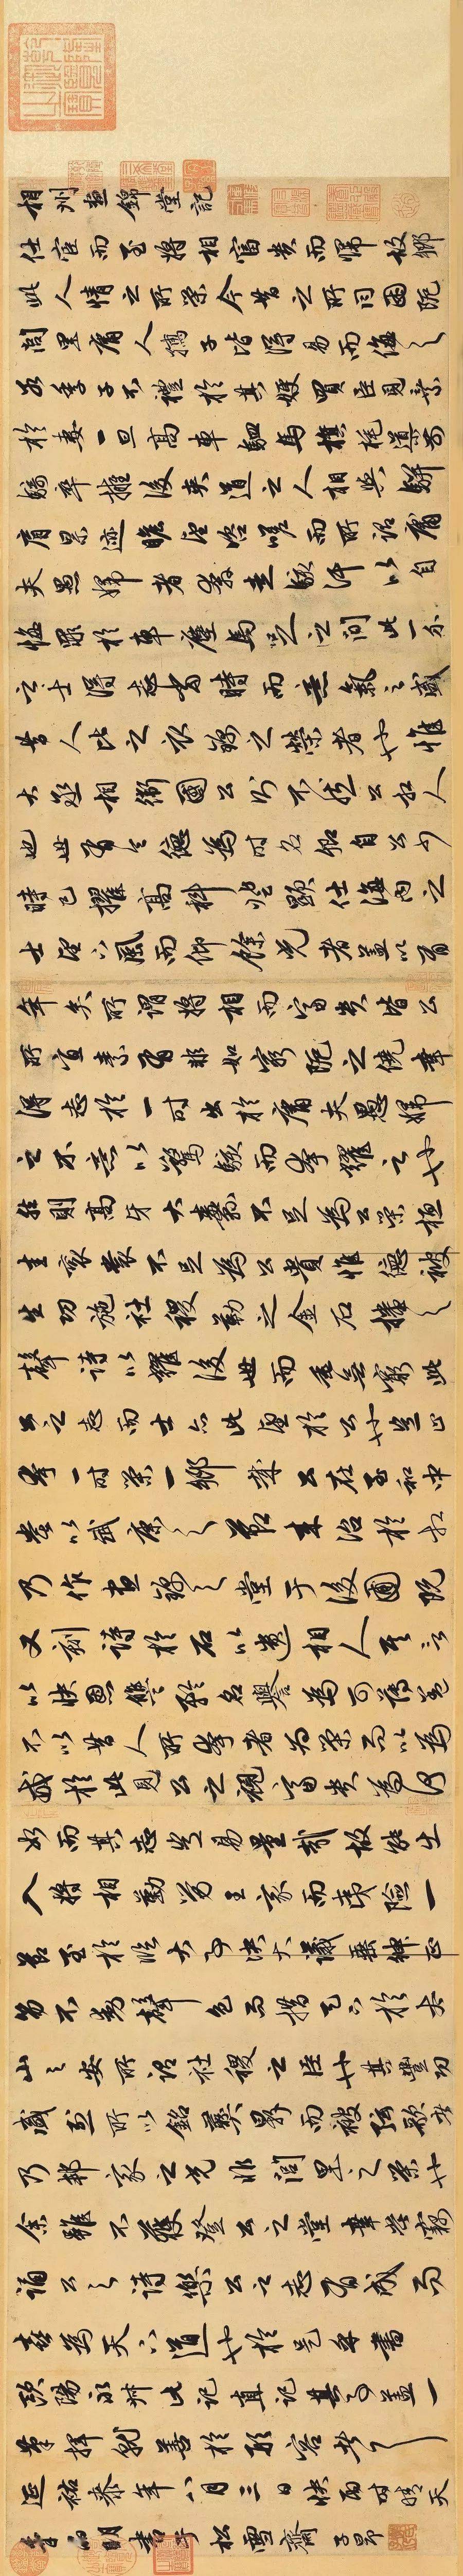 相州晝錦堂記
仕宦而至將相富貴而歸故鄉
此人情之所榮今昔之所同困阨
閭里庸人孺子皆得易而侮之
若季子不禮於其嫂買臣見棄
於妻一旦高車駟馬旗旄導前
騎卒擁後夾道之人相與駢
肩累迹瞻望咨嗟而所謂庸
夫愚婦者奔走駭汗以自
悔罪於車塵馬足之間此一介
之士得志當時而意氣之盛
昔人比之衣錦之榮者也惟
大丞相衛國公則不然公相人
也世有令德為時名卿自公少
時已擢高科登顯仕海內之
士望下風而仰餘光者蓋亦有
年矣所謂將相而富貴皆公
所宜素有非如窮阨之僥幸
得志於一時出於庸夫愚婦
之不意以驚駭而夸耀之也
然則高牙大纛不足為公榮桓
圭袞裳不足為公貴惟德被
生功施社稷勒之金石播之
聲詩以耀後世而垂無窮此
公之志而士亦此望於公也豈止
夸一時榮一鄉哉公在至和中
嘗以武康之節來治於相
乃作晝錦之堂于後圃既
又刻詩於石以遺相人其言
以快恩讎矜名譽為可薄蓋
不以昔人所夸者為榮而以為
戒於此見公之視富貴為何
如而其志豈易量哉故能出
入將相勤勞王家而夷險一
節至於臨大事決大議垂紳正
笏不動聲色而措天下於泰
山之安所謂社稷之臣也其豐功
盛烈所以銘彝鼎而被弦歌者
乃邦家之光非閭里之榮也
余雖不獲登公之堂幸嘗竊
誦公之詩樂公之志有成而
喜為天下道也於是乎書
歐陽永叔此記直記其事蓋一
筆揮就善於形容者
延祐年八月三日快雨時晴天
明書于松雪齋 子昂